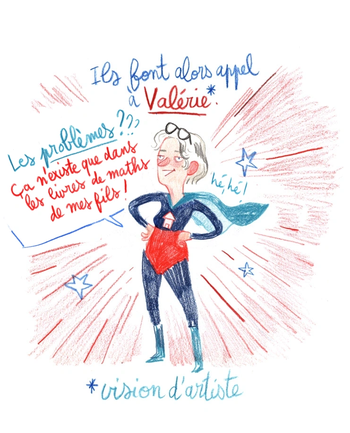 Ils font alors appel
à Valérie*.
Les problèmes ???
Ça n'existe que dans
les livres de maths
de mes fils !
hé, hé !
*vision d'artiste